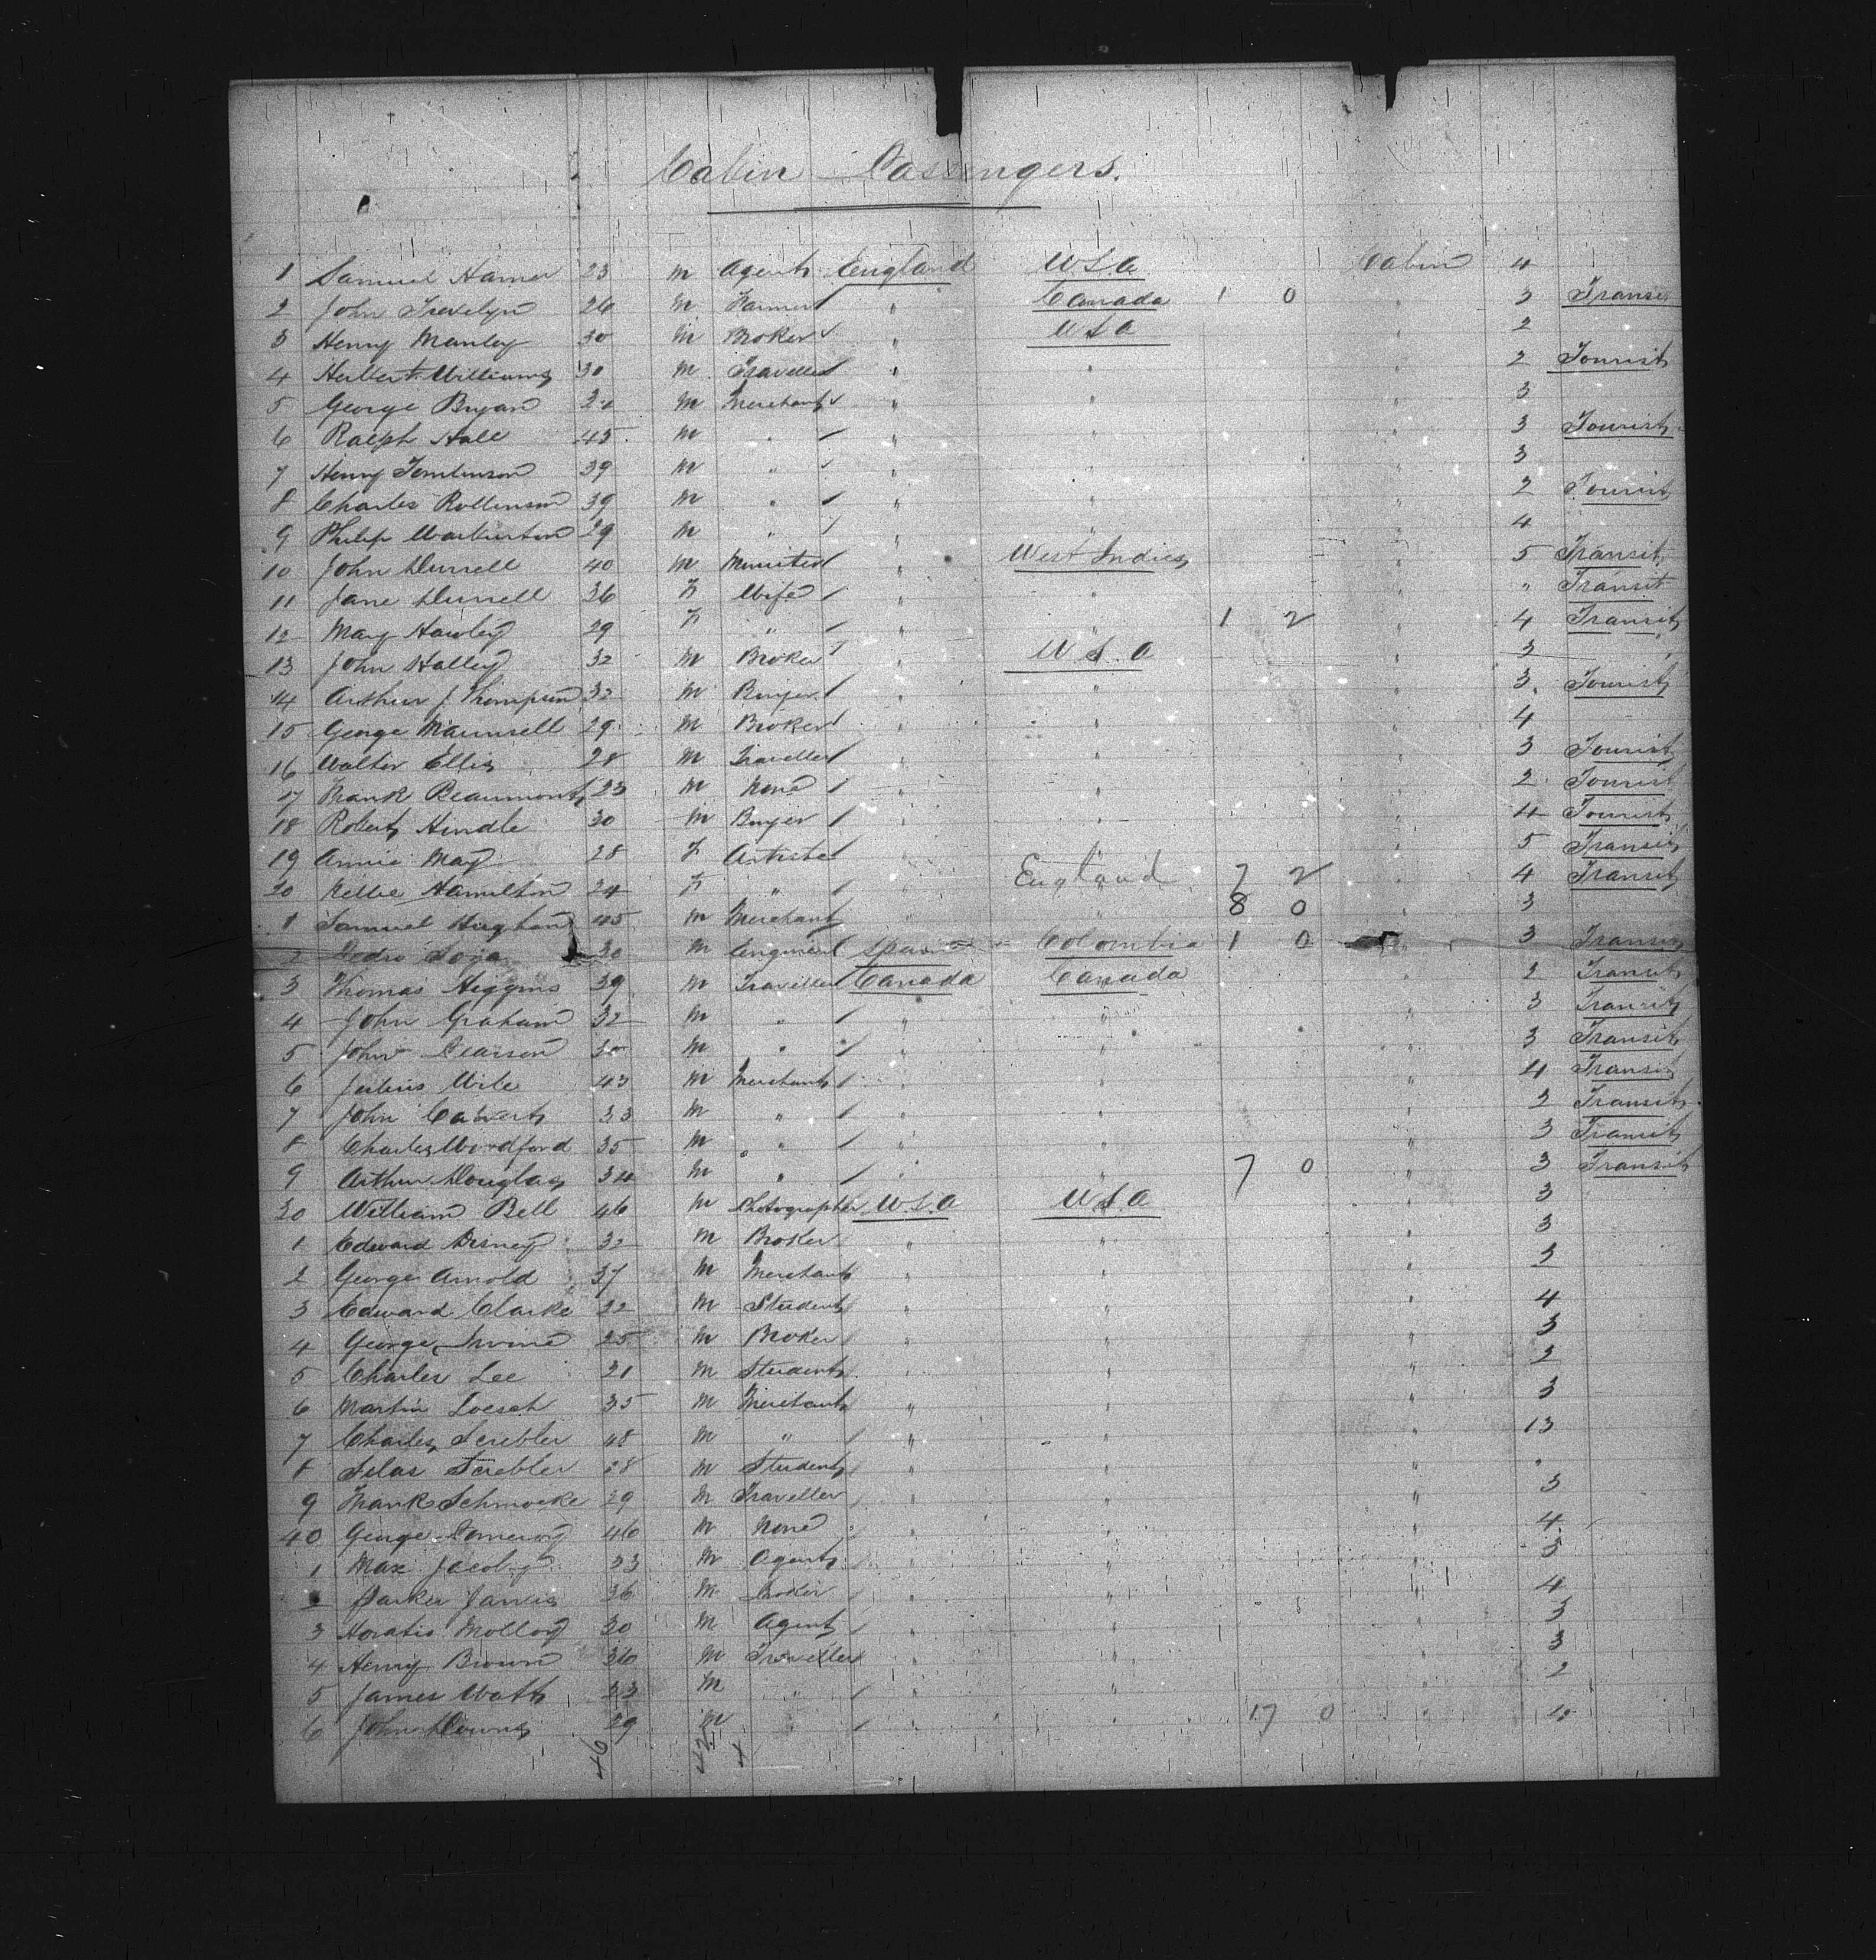 Cabin Passengers.
1 Samuel Hamer 23 M Agent England U.S.A Cabin 4
2 John Trevelyn 26 M Farmer " Canada 1 0 " 3 Transit
3 Henry Manley 30 M Broker " U S A " 2
4 Herbert Williams 30 M Traveller " " " 2 Tourist
5 George Bryan M Merchant " " " 3
6 Ralph Hall 45 M " " " " 3 Tourist
7 Henry Tomlinson 39 M " " " " 3
8 Charles Rollinson 39 M " " " " 2 Tourist
9 Philip Warburton 29 M " " " " 4
10 John Durrell 40 M Minister " West Indies " 5 Transit
11 Jane Durrell 36 F Wife " " " " Transit
12 Mary Hawley 29 F " " " 1 2 " 4 Transit
13 John Halley 32 M Broker " U S. A " 3
14 Arthur J Thompson 32 M Buyer " " " 3 Tourist
15 George Maunsell 29 M Broker " " " 4
16 Walter Ellis 28 M Traveller " " " 3 Tourist
17 Frank Beaumont 23 M None " " " 2 Tourist
18 Robert Hindle 30 M Buyer " " " 4 Tourist
19 Annie May 28 F Artiste " " 5 Transit
20 Nellie Hamilton 24 F " " England 7 2 " 4 Transit
1 Samuel Higham 45 M Merchant " " 8 0 " 3
2 Pedro 30 M Engineer Spain Colombia 1 0 " 3 Transit
3 Thomas Higgins 39 M Traveller Canada Canada " 2 Transit
4 John Graham 32 M " " " " 3 Transit
5 John Pearson 30 M " " " " 3 Transit
6 Julius Wile 43 M Merchant " " " 4 Transit
7 John Calvert 33 M " " " " 2 Transit
8 Charles Woodford 35 M " " " " 3 Transit
9 Arthur Douglas 34 M " " " 7 0 " 3 Transit
30 William Bell 46 M Photographer U.S.A U.S.A " 3
1 Edward Disney 32 M Broker " " " 3
2 George Arnold 37 M Merchant " " " 3
3 Edward Clarke 22 M Student " " " 4
4 George Irvine 25 M Broker " " " 3
5 Charles Lee 21 M Student " " " 2
6 Martin Loesch 35 M Merchant " " " 3
7 Charles Screbler 48 M " " " " 13
8 Silas Screbler 28 M Student " " " "
9 Frank Schmocke 29 M Traveller " " " 3
40 George Pomeroy 46 M None " " " 4
1 Max Jacoby 33 M Agent " " " 3
2 Parker Jarvis 36 M Broker " " " 4
3 Horatio Molloy 30 M Agent " " " 3
4 Henry Brown 36 M Traveller " " " 3
5 James Watt 33 M " " " " 2
6 John Downs 29 M " " " 17 0 "
46 42 4